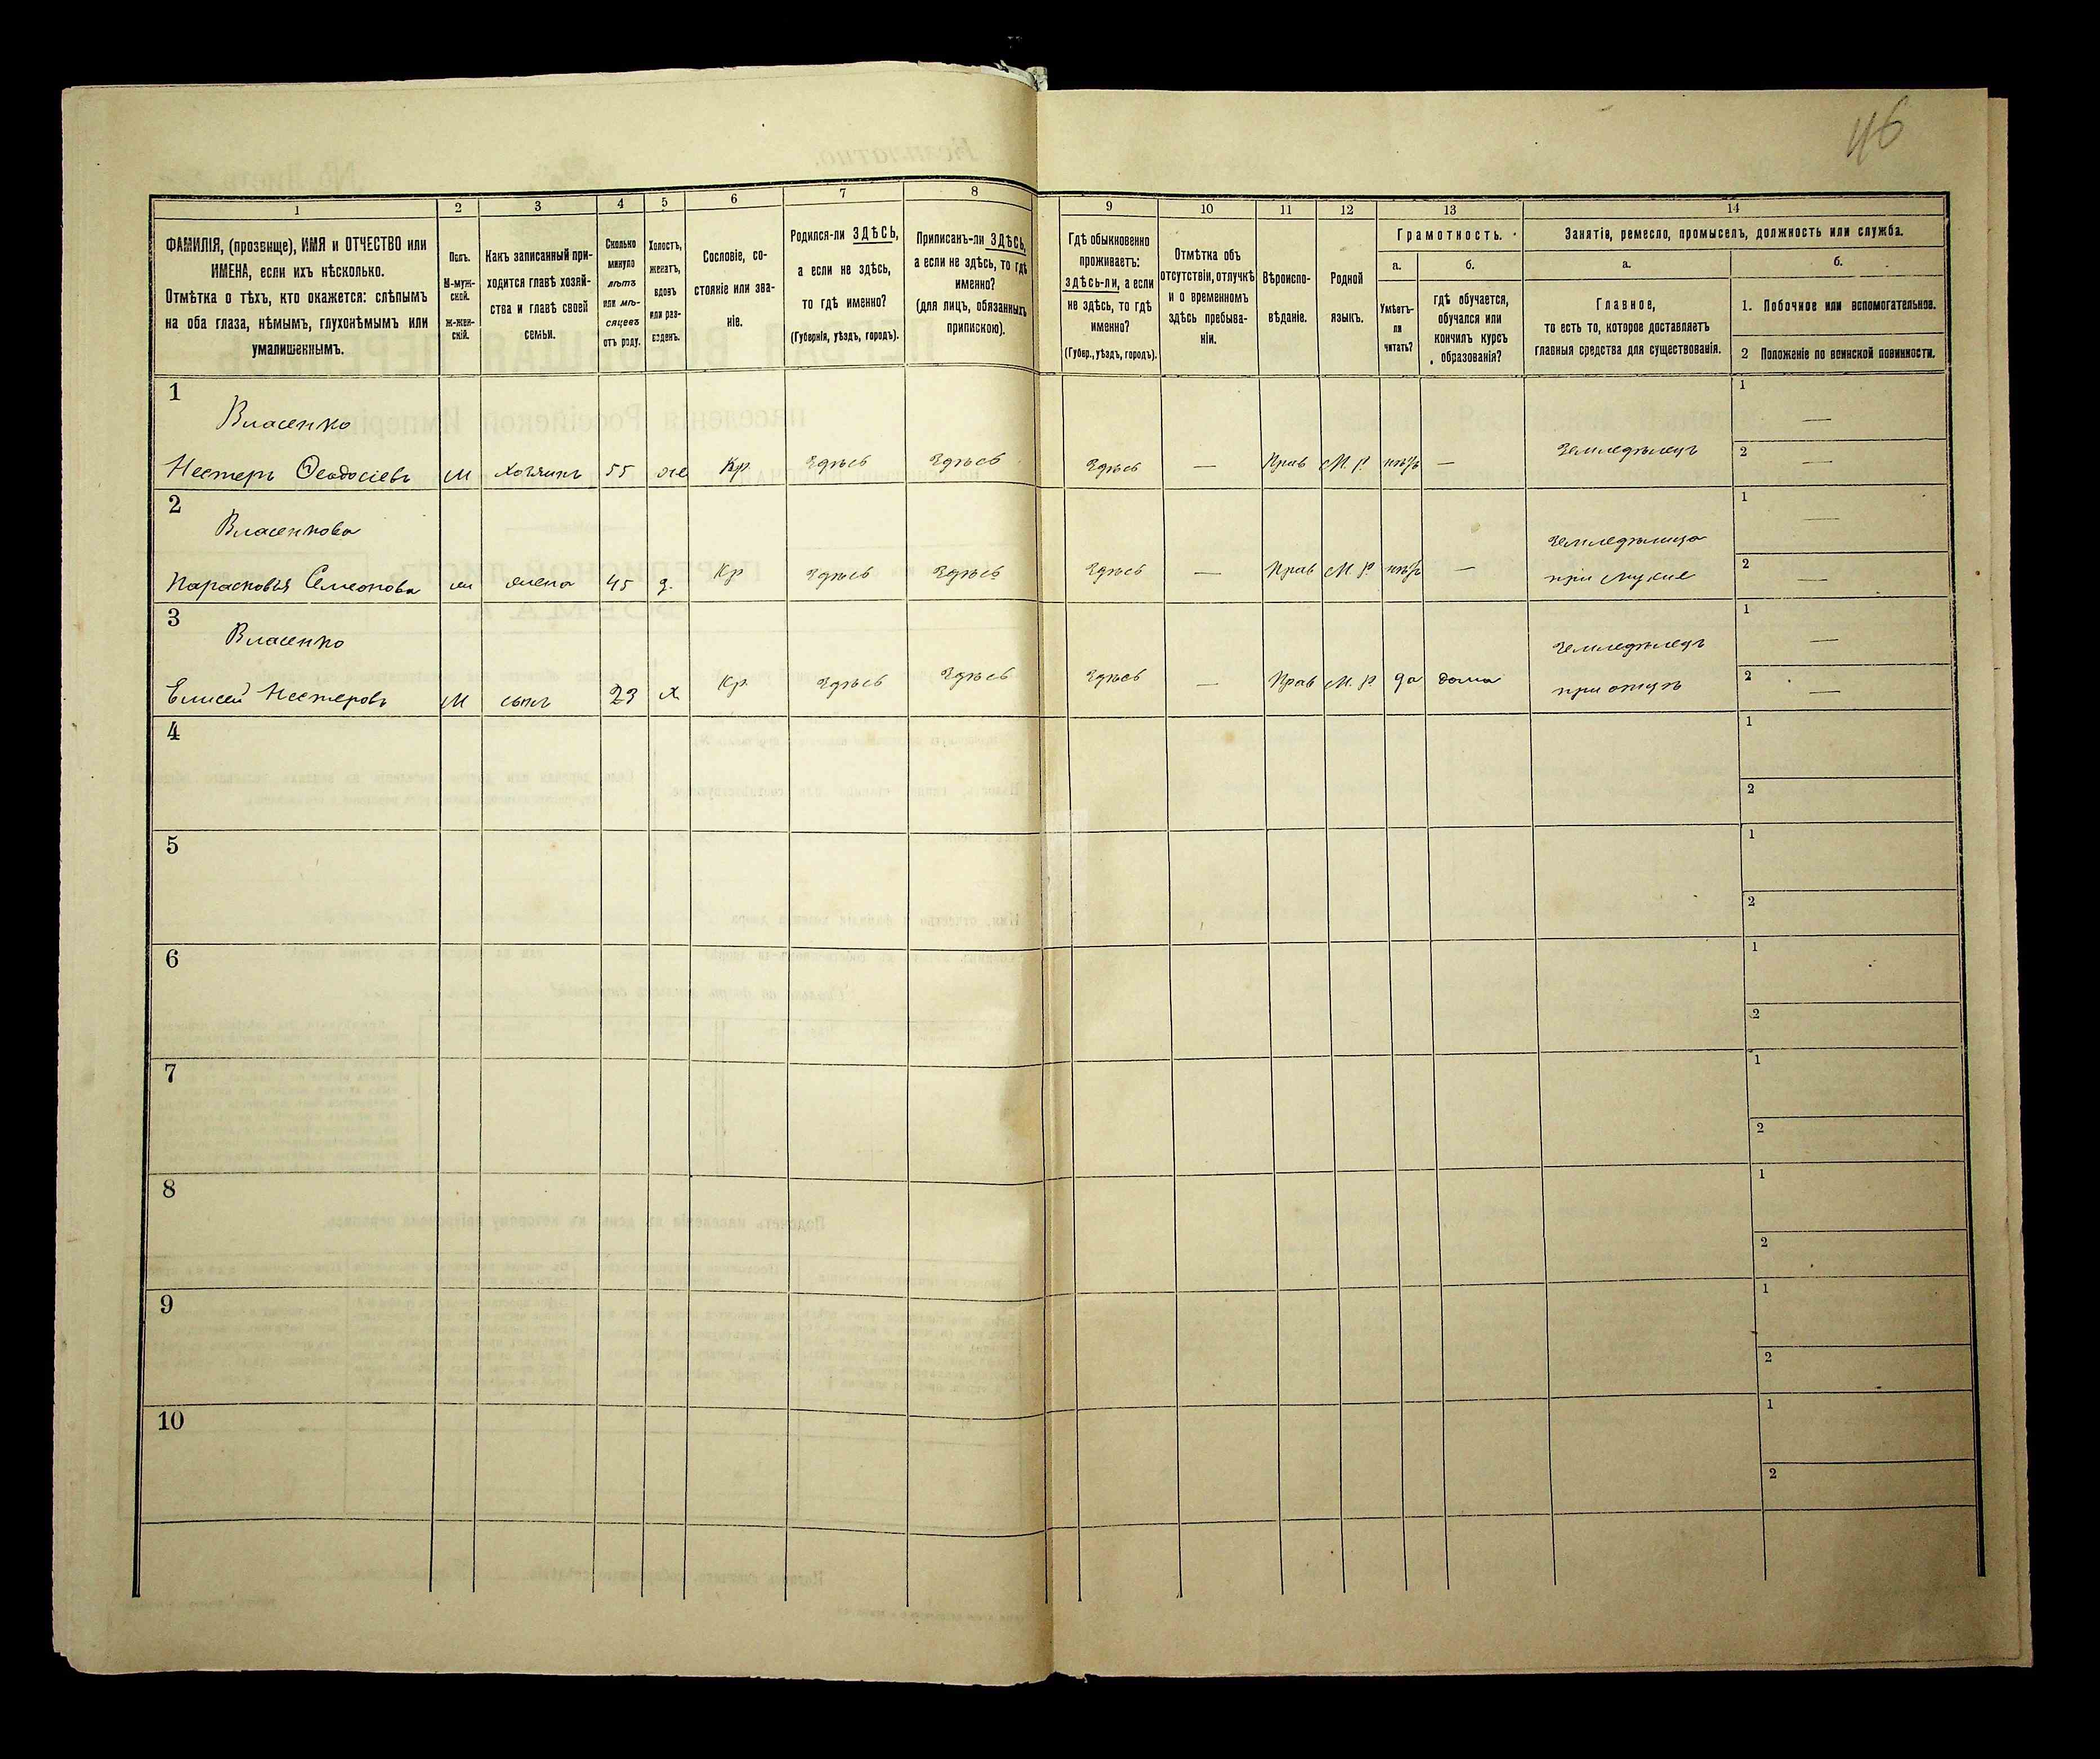 46
1 2 3 4 5 6 7 8 9 10 11 12 13 14
ФАМИЛІЯ, (прозвище), ИМЯ и ОТЧЕСТВО или
ИМЕНА, если ихъ нѣсколько.
Отмѣтка о тѣхъ, кто окажется: слѣпымъ
на оба глаза, нѣмымъ, глухонѣмымъ или
умалишеннымъ.
Полъ.
М-муж-
ской.
Ж-жен-
скій.
Какъ записанный при-
ходится главѣ хозяй-
ства и главѣ своей
семьи.
Сколько
минуло
лѣтъ
или мѣ-
сяцевъ
отъ роду.
Холостъ,
женатъ,
вдовъ
или раз-
веденъ.
Сословіе, со-
стояніе или зва-
ніе.
Родился-ли ЗДѢСЬ,
а если не здѣсь,
то гдѣ именно?
(Губернія, уѣздъ, городъ).
Приписанъ-ли ЗДѢСЬ,
а если не здѣсь, то гдѣ
именно?
(для лицъ, обязанныхъ
припискою).
Гдѣ обыкновенно
проживаетъ:
здѣсь-ли, а если
не здѣсь, то гдѣ
именно?
(Губер., уѣздъ, городъ).
Отмѣтка объ
отсутствіи, отлучкѣ
и о временномъ
здѣсь пребыва-
ніи.
Вѣроиспо-
вѣданіе.
Родной
языкъ.
Грамотность.
а.
Умѣетъ-
ли
читать?
б.
гдѣ обучается,
обучался или
кончилъ курсъ
образованія?
Занятіе, ремесло, промыселъ, должность или служба.
а.
Главное,
то есть то, которое доставляетъ
главныя средства для существованія.
б.
1. Побочное или вспомогательное.
2 Положеніе по воинской повинности.
1
Власенко
Нестеръ Ѳеодосіевъ М хозяинъ 55 же Кр. Здѣсь Здѣсь Здѣсь — Прав М. р. нѣтъ — Земледѣлецъ
1 —
2 —
2
Власенкова
Парасковія Семеонова ж жена 45 з. Кр Здѣсь Здѣсь Здѣсь — Прав М. р. нѣтъ —
Земледѣлица
при мужѣ
1 —
2 —
3
Власенко
Елисей Нестеровъ М сынъ 23 х Кр Здѣсь Здѣсь Здѣсь — Прав М. р да дома
Земледѣлецъ
при отцѣ
1 —
2 —
4
1
2
5
1
2
6
1
2
7
1
2
8
1
2
9
1
2
10
1
2